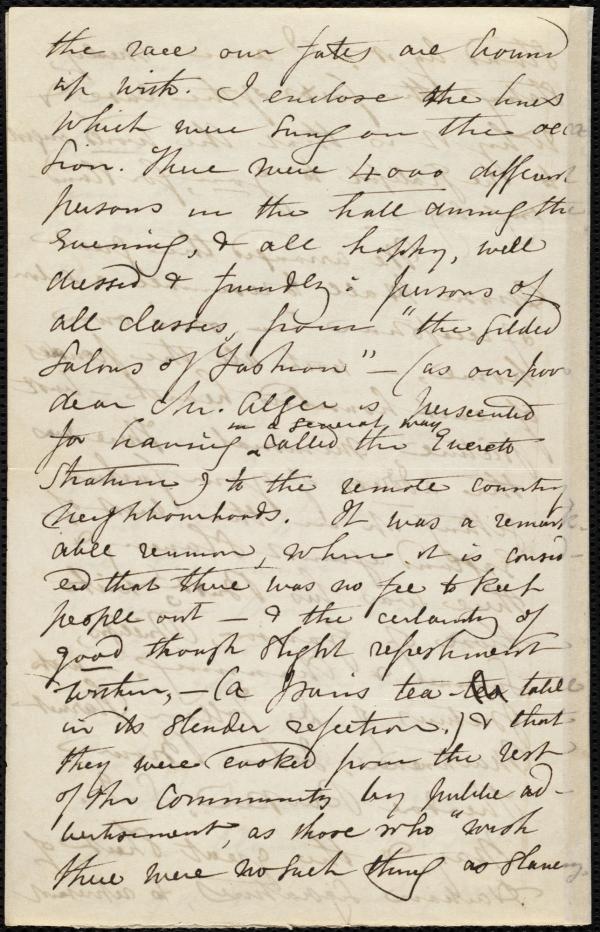 the race our fates are bound
up with. I enclose the lines
which were sung on the occa
sion. There were 4000 different
persons in the hall during the
Evening, & all happy, well
dressed & friendly: persons of
all classes, from "the gilded
Salons of Fashion" - (as our poor
dear Mr. Alger is persecuted
for having in a general way called the Everett
Stratum) to the remote country
neighbourhoods. It was a remark
able reunion, when it is consid-
ed that there was no fee to keep
people out - & the certainty of
good though slight refreshment
within, - (a Paris tea table
in its slender refection.) & that
they were evoked from the rest
of the Community by public ad-
vertisement, as those who "wish
there were no such thing as slavery.